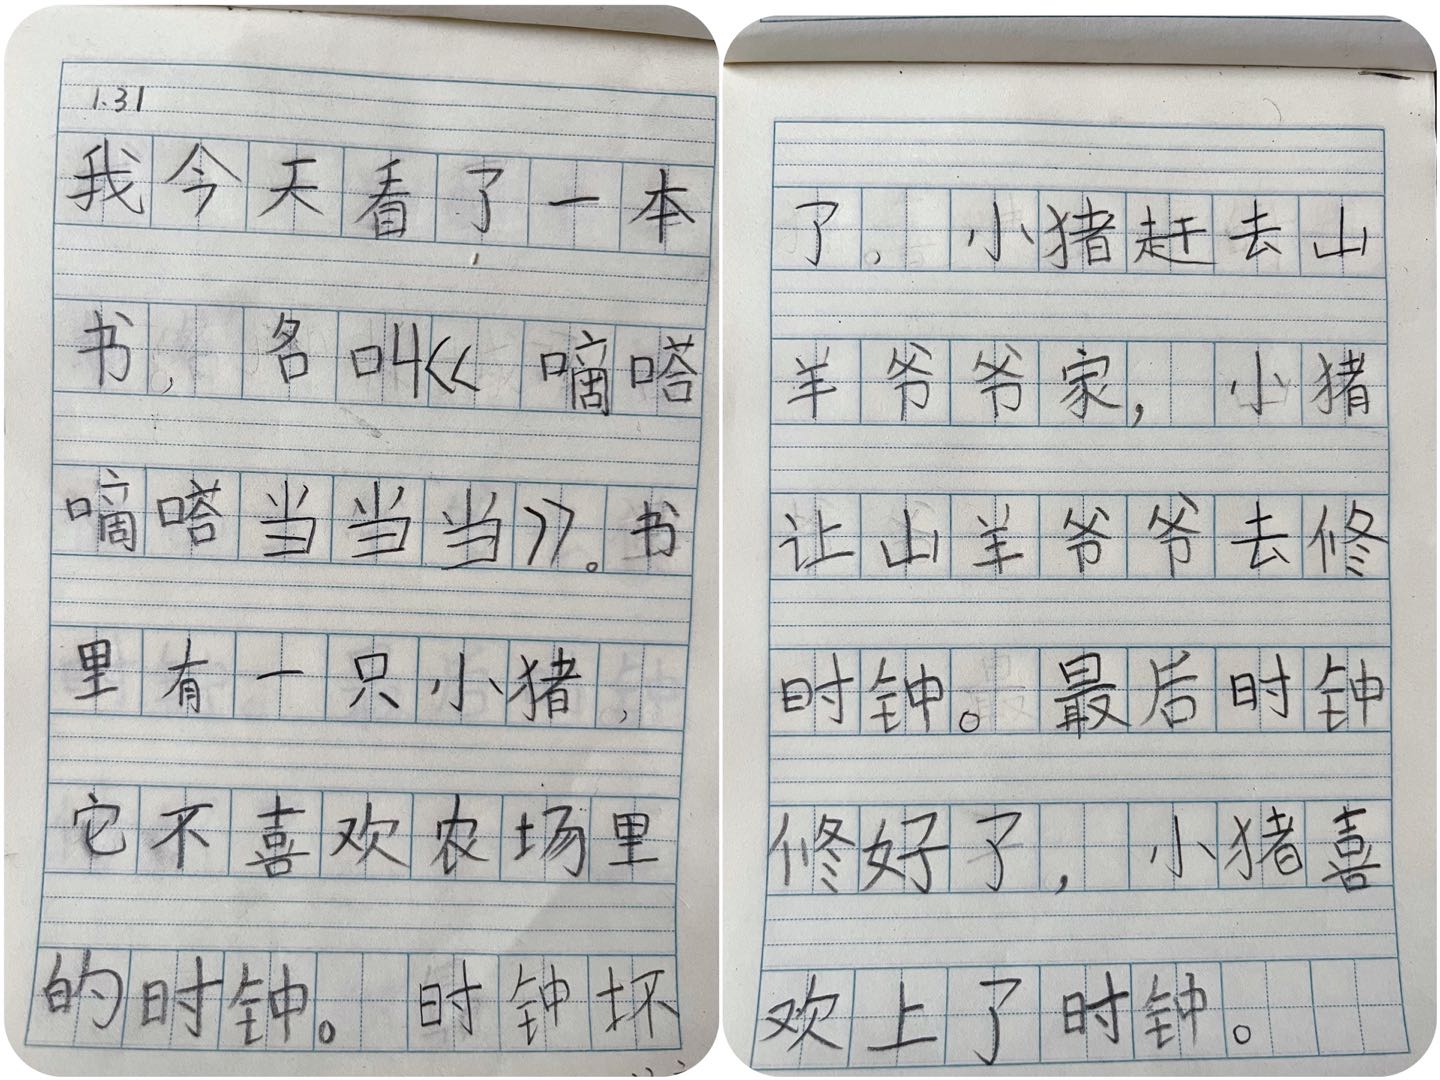 1.31
我今天看了一本
书,名叫《嘀嗒
嘀嗒当当当》。书
里有一只小猪,
它不喜欢农场里
的时钟。时钟坏
了。小猪赶去山
羊爷爷家,小猪
让山羊爷爷去修
时钟。最后时钟
修好了,小猪喜
欢上了时钟。